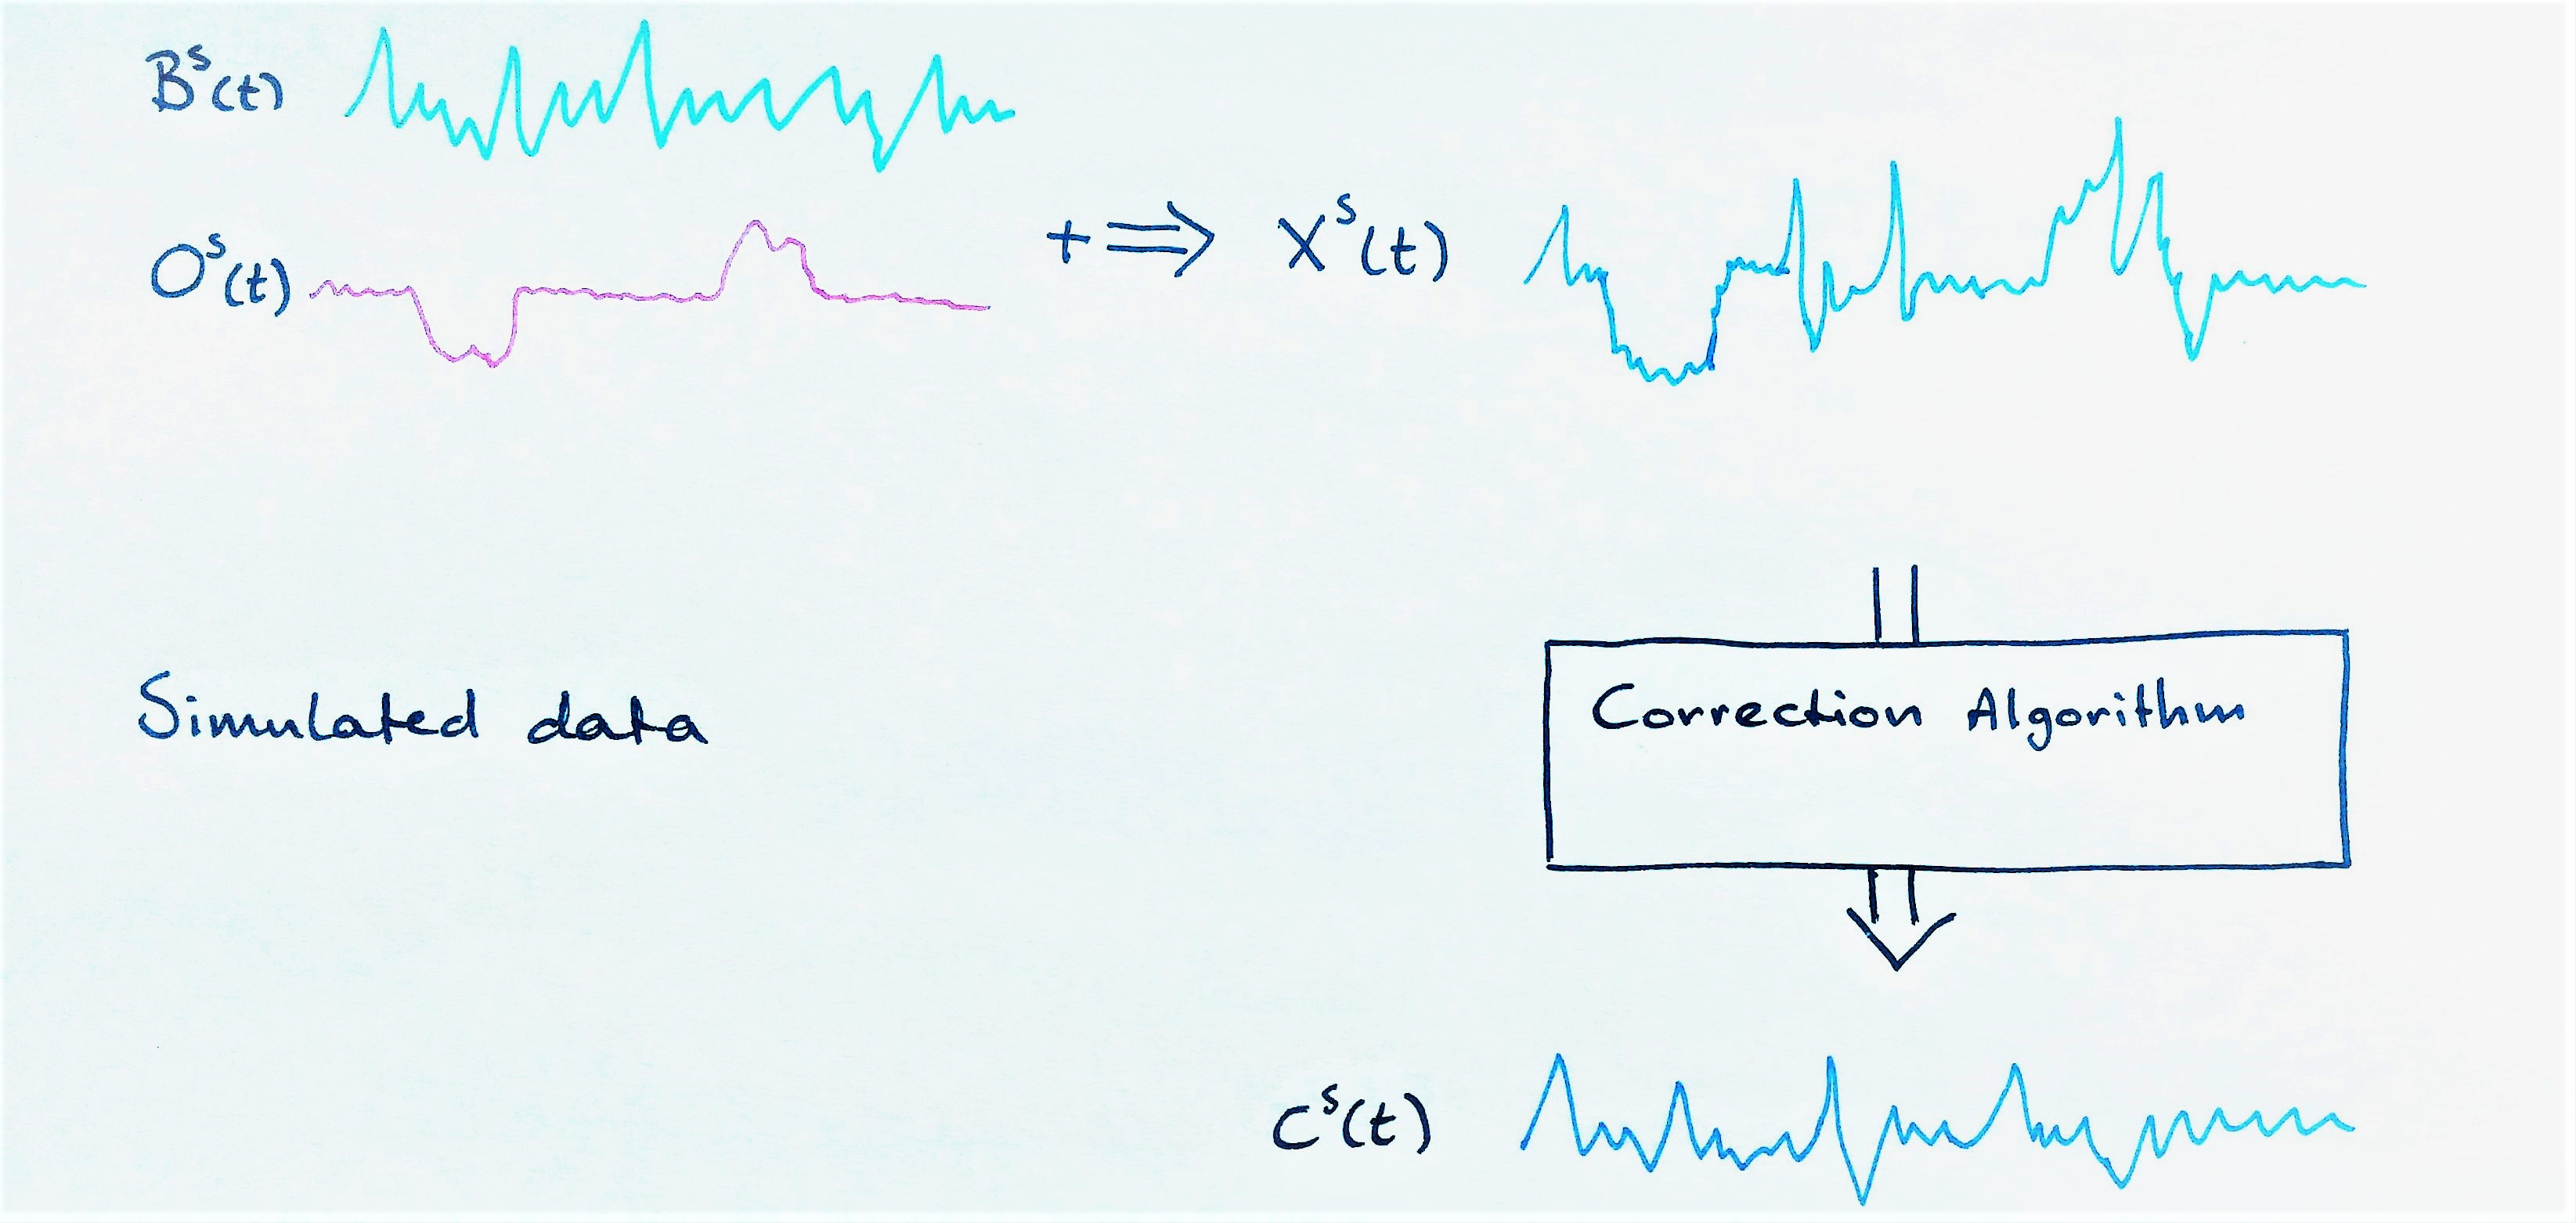 Bˢ(t)
Oˢ(t)
+ ⇒ Xˢ(t)
Simulated data
Correction Algorithm
Cˢ(t)